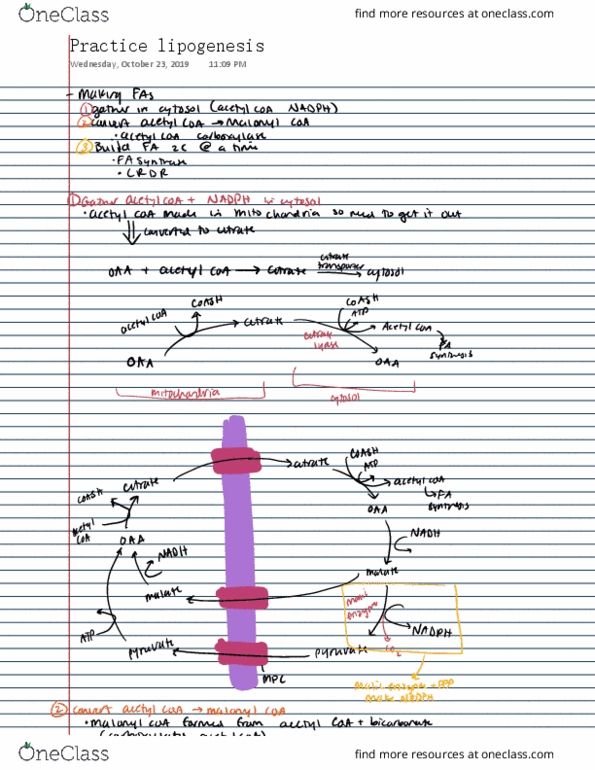 OneClass
find more resources at oneclass.com
Practice lipogenesis
Wednesday, October 23, 2019 11:09 PM
- Making FAs
① gather in cytosol (acetyl coA NADPH)
② convert acetyl coA → Malonyl coA
• acetyl coA carboxylase
③ Build FA 2C @ a time
• FA Synthase
• CRDR
① Gather acetyl coA + NADPH in cytosol
• acetyl coA made in mitochondria so need to get it out
converted to citrate
OAA + acetyl coA → citrate citrate transporter → cytosol
acetyl coA
CoASH
citrate
OAA
citrate lyase
CoASH
ATP
Acetyl coA
FA synthesis
OAA
mitochondria
cytosol
citrate
CoASH
acetyl coA
OAA
NADH
malate
ATP
pyruvate
citrate
CoASH
ATP
acetyl coA
↳ FA synthesis
OAA
NADH
malate
malic enzyme
CO2
NADPH
pyruvate
MPC
malic enzyme + PPP
make NADPH
② convert acetyl coA → malonyl coA
• malonyl coA formed from acetyl coA + bicarbonate
OneClass
find more resources at oneclass.com